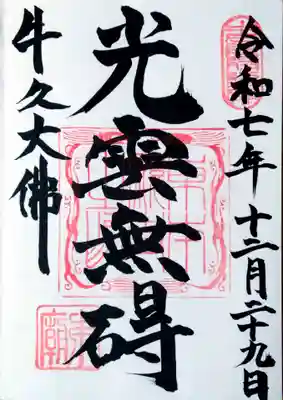 令和七年 十二月二十九日
光雲無碍
牛久大佛